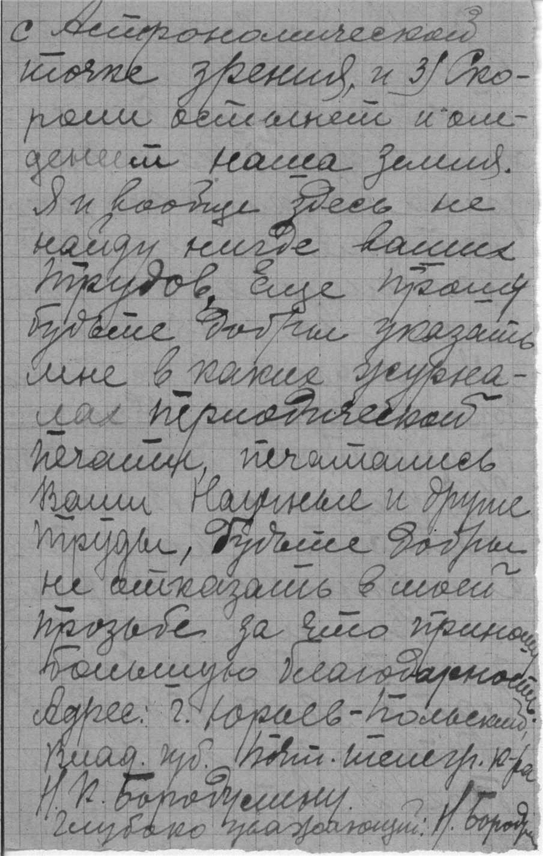 с Астрономической
точке зрения, и 3) Ско-
роли остынет и оле-
денеет наша Земля.
Я и вообще здесь не
найду нигде ваших
трудов, Еще прошу
будьте добры указать
мне в каких журна-
лах периодической
печати, печатались
Ваши Научные и друие
труды, будьте добры
не отказать в моей
прозьбе за что приношу
большую благодарность.
Адрес: г. Юрьев-Польский,
Влад. губ. Почт. телегр. к-ра
Н. К. Бородулину.
Глубоко уважающий: Н. Бороду